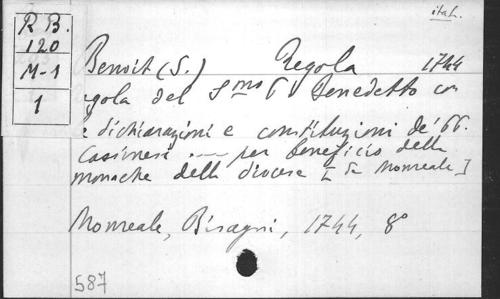 ital.
R B.
120
M-1
1
Benoit (S.) Regola 1744
egola del Smo P Benedetto con
e dichiarazioni e constituzioni de' PP.
Cassinesi .... per beneficio delle
monache della diocese [ di Monreale ]
Monreale, Bisagni, 1744, 8°
587